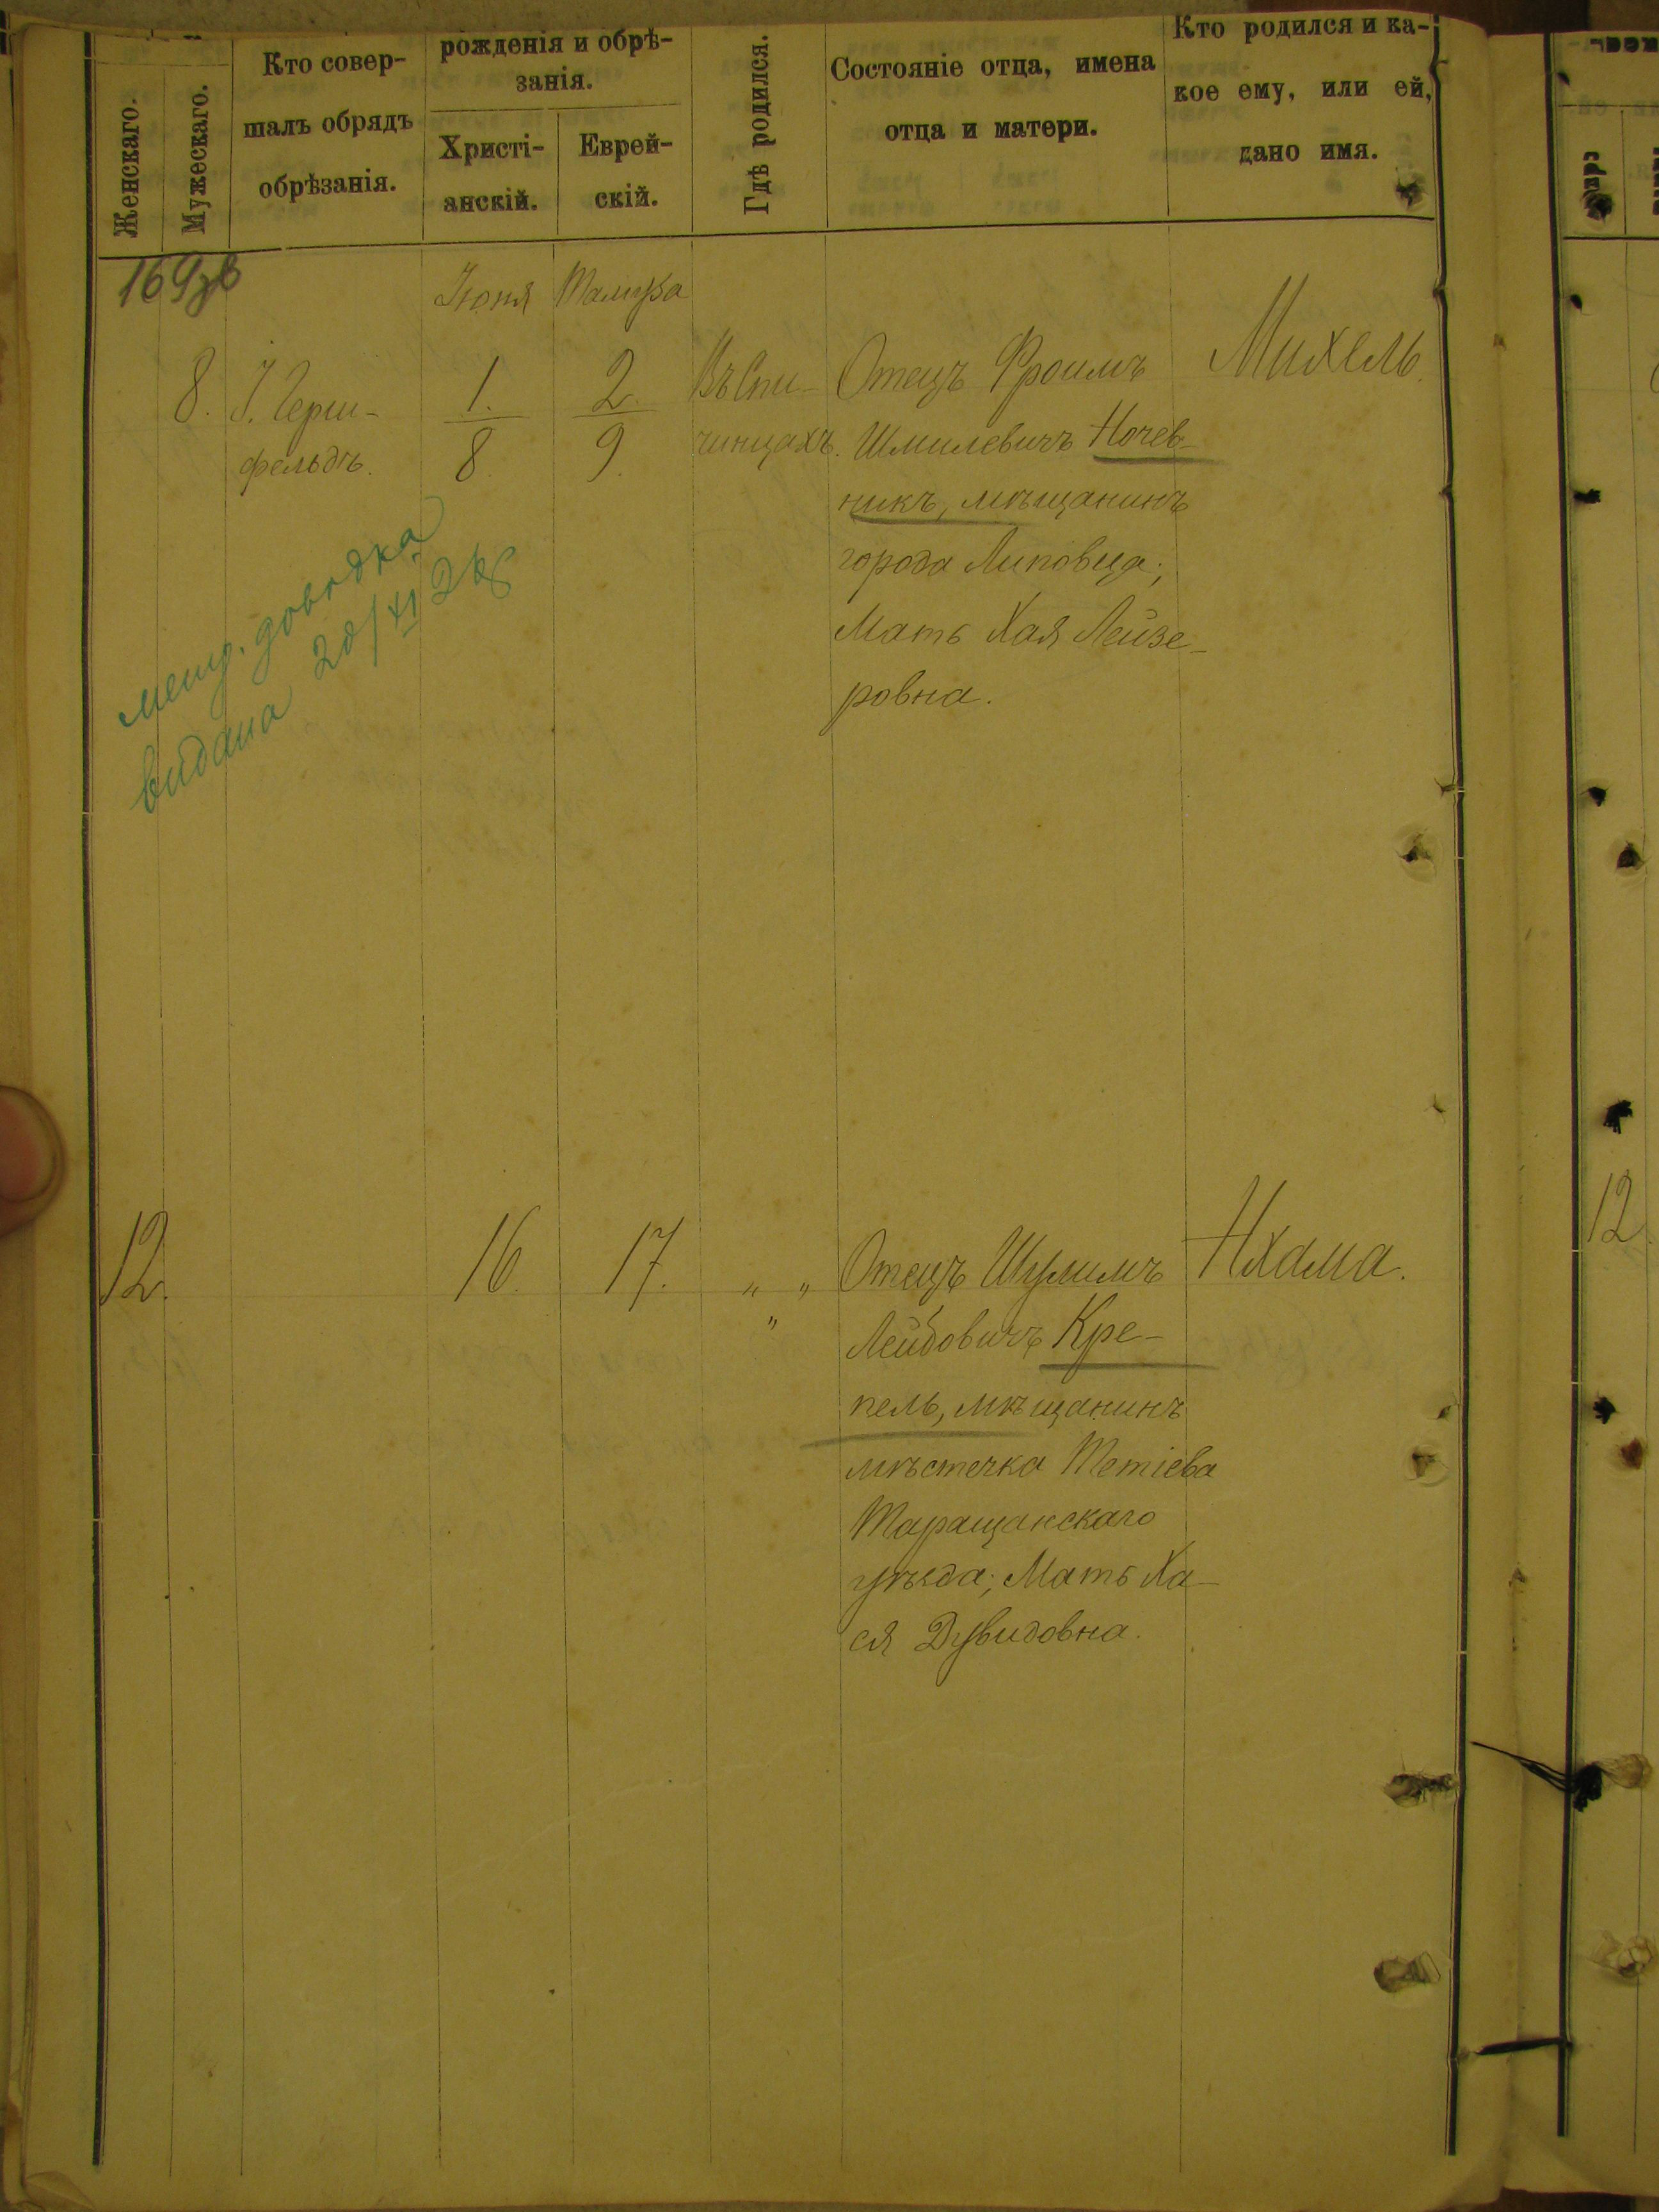 Женскаго.
Мужескаго.
Кто совер-
шалъ обрядъ
обрѣзанія.
рожденія и обрѣ-
занія.
Христі-
анскій.
Еврей-
скій.
Гдѣ родился.
Состояніе отца, имена
отца и матери.
Кто родился и ка-
кое ему, или ей,
дано имя.
169зв
Іюня Тамуза
8. І. Герш-
фельдъ.
1.
8.
2.
9.
Въ Спи-
чинцахъ.
Отецъ Фроимъ
Шмилевичъ Ночев-
никъ, мѣщанинъ
города Липовца;
Мать Хая Лейзе-
ровна.
Михель.
метр. довідка
видана 20/XI 26
12. 16. 17. „ „
„
Отецъ Шулимъ
Лейбовичъ Кре-
пель, мѣщанинъ
мѣстечка Тетіева
Таращанскаго
уѣзда; Мать Ха-
ся Дувидовна.
Нхама.
12